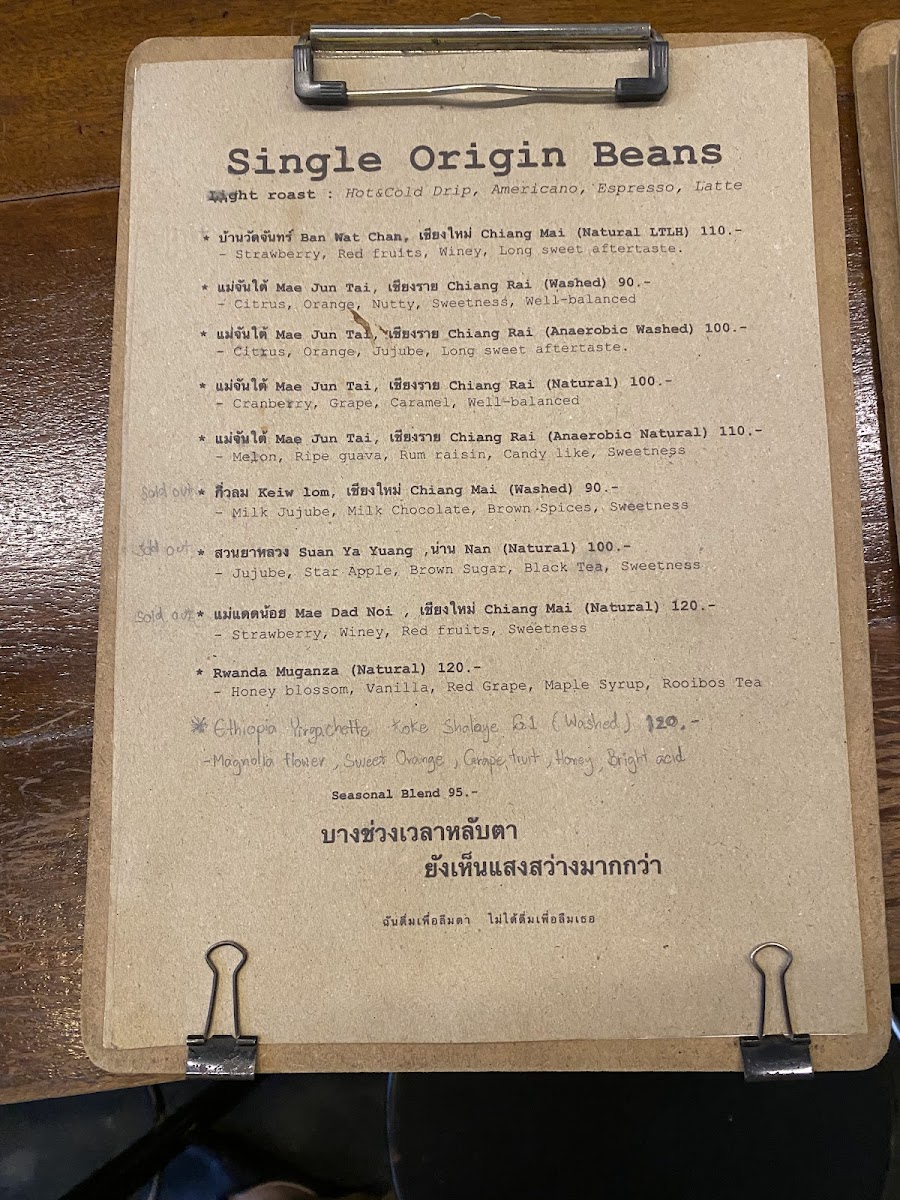 Single Origin Beans
Light roast : Hot&Cold Drip, Americano, Espresso, Latte
* บ้านวัดจันทร์ Ban Wat Chan, เชียงใหม่ Chiang Mai (Natural LTLH) 110.-
- Strawberry, Red fruits, Winey, Long sweet aftertaste.
* แม่จันใต้ Mae Jun Tai, เชียงราย Chiang Rai (Washed) 90.-
- Citrus, Orange, Nutty, Sweetness, Well-balanced
* แม่จันใต้ Mae Jun Tai, เชียงราย Chiang Rai (Anaerobic Washed) 100.-
- Citrus, Orange, Jujube, Long sweet aftertaste.
* แม่จันใต้ Mae Jun Tai, เชียงราย Chiang Rai (Natural) 100.-
- Cranberry, Grape, Caramel, Well-balanced
* แม่จันใต้ Mae Jun Tai, เชียงราย Chiang Rai (Anaerobic Natural) 110.-
- Melon, Ripe guava, Rum raisin, Candy like, Sweetness
Sold out * กิ่วลม Keiw lom, เชียงใหม่ Chiang Mai (Washed) 90.-
- Milk Jujube, Milk Chocolate, Brown Spices, Sweetness
Sold out * สวนยาหลวง Suan Ya Yuang ,น่าน Nan (Natural) 100.-
- Jujube, Star Apple, Brown Sugar, Black Tea, Sweetness
Sold out * แม่แดดน้อย Mae Dad Noi , เชียงใหม่ Chiang Mai (Natural) 120.-
- Strawberry, Winey, Red fruits, Sweetness
* Rwanda Muganza (Natural) 120.-
- Honey blossom, Vanilla, Red Grape, Maple Syrup, Rooibos Tea
* Ethiopia Yirgachette Koke Shalaye G1 (Washed) 120.-
-Magnolia flower, Sweet Orange, Grapefruit, Honey, Bright acid
Seasonal Blend 95.-
บางช่วงเวลาหลับตา
ยังเห็นแสงสว่างมากกว่า
ฉันดื่มเพื่อลืมตา ไม่ได้ดื่มเพื่อลืมเธอ